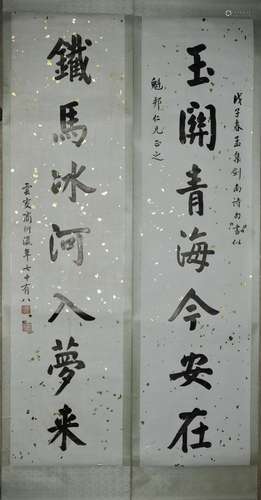 戊子春孟集劍南詩句書似
魁邦仁兄正之
玉關青海今安在
鐵馬冰河入夢来
雲汀商衍瀛年七十有八